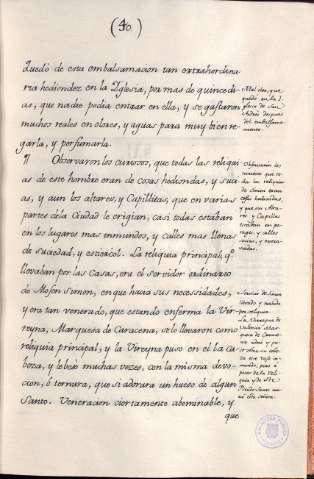 (40.)
Quedó de esta embalsamacion tan extrahordina
ria hediondez en la Yglesia, por mas de quince di
as, que nadie podia entrar en ella, y se gastaron
muchos reales en olores, y aguas para muy bien re
garla, y perfumarla.
Observaron los curiosos, que todas las reliqui
as de este hombre eran de cosas hediondas, y suci
as, y aun los altares, y Capillitas, que en varias
partes de la Ciudad le erigian, casi todas estaban
en los lugares mas inmundos, y calles mas llenas
de suciedad, y estiercol. La reliquia principal, q.e
llevaban por las Casas, era el servidor ordinario
de Mosen Simon, en que hacia sus necesidades,
y era tan venerado, que estando enferma la Vir
reyna, Marquesa de Caracena, se lo llevaron como
reliquia principal, y la Vireyna puso en el la Ca
beza, y le besó muchas vezes, con la misma devo
cion, ó ternura, que si adorara un hueso de algun
Santo. Veneracion ciertamente abominable, y
que
Mal olor, que
quedó en la Y
glesia de San
Andres despues
del embalsama
miento.
Observacion de los
curiosos que to
das las reliquias
de Simon eran de
cosas hediondas,
y que sus Alta
res, y Capillas
erigidas en pa
rages, y calles
sucias, y